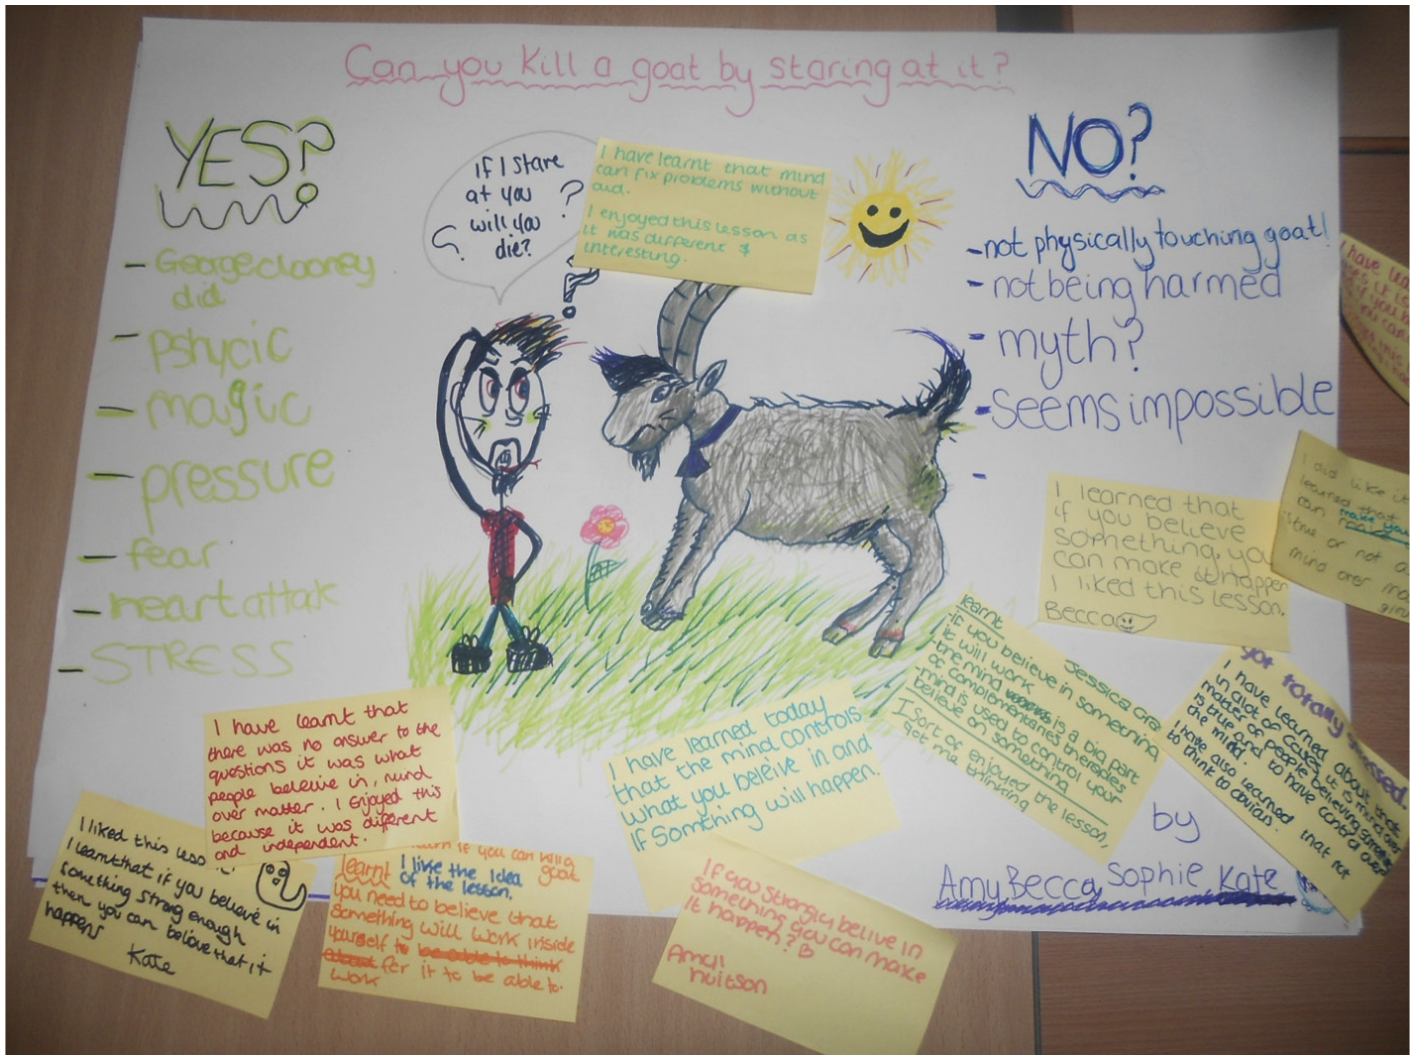 Can you Kill a goat by staring at it?
YES?
- George clooney
did
- pshycic
- magic
- pressure
- fear
- heart attak
- STRESS
If I stare
at you
will you
die?
?
?
?
I have learnt that mind
can fix problems without
aid.
I enjoyed this lesson as
it was different &
interesting.
NO?
- not physically touching goat!
- not being harmed
- myth?
- seems impossible
-
I learned that
if you believe
something, you
can make it happen
I liked this lesson.
Becca
I did like it
learned that
can make you
is true or not a
mind over ma
learnt
Jessica Gra
- if you believe in something
it will work
- the mind is a big part
of complementaries therapies
- mind is used to control your
believe on something
I Sort of enjoyed the lesson,
got me thinking
got totally
I have learned about that
in alot of cases it is mind over
matter of people believing
is true and to have control over
the mind.
I have also learned that not
to think to obvious.
I have learnt that
there was no answer to the
questions it was what
people beleive in, mind
over matter. I enjoyed this
because it was different
and independent.
I have learned today
that the mind controls
what you beleive in and
if Somthing will happen.
I liked this less
I learnt that if you believe in
something strong enough
then you can believe that it
happens
Kate
if you can kill a goat
learnt I like the idea
of the lesson.
you need to believe that
something will work inside
yourself to be able to think
about for it to be able to
work
If you strongly belive in
something you can make
it happen?
Amy
hutson
by
Amy Becca, Sophie Kate